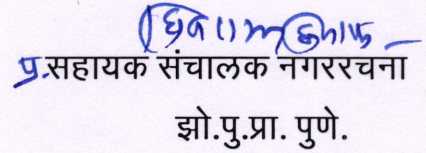 प्र.सहायक संचालक नगररचना
झो.पु.प्रा. पुणे.